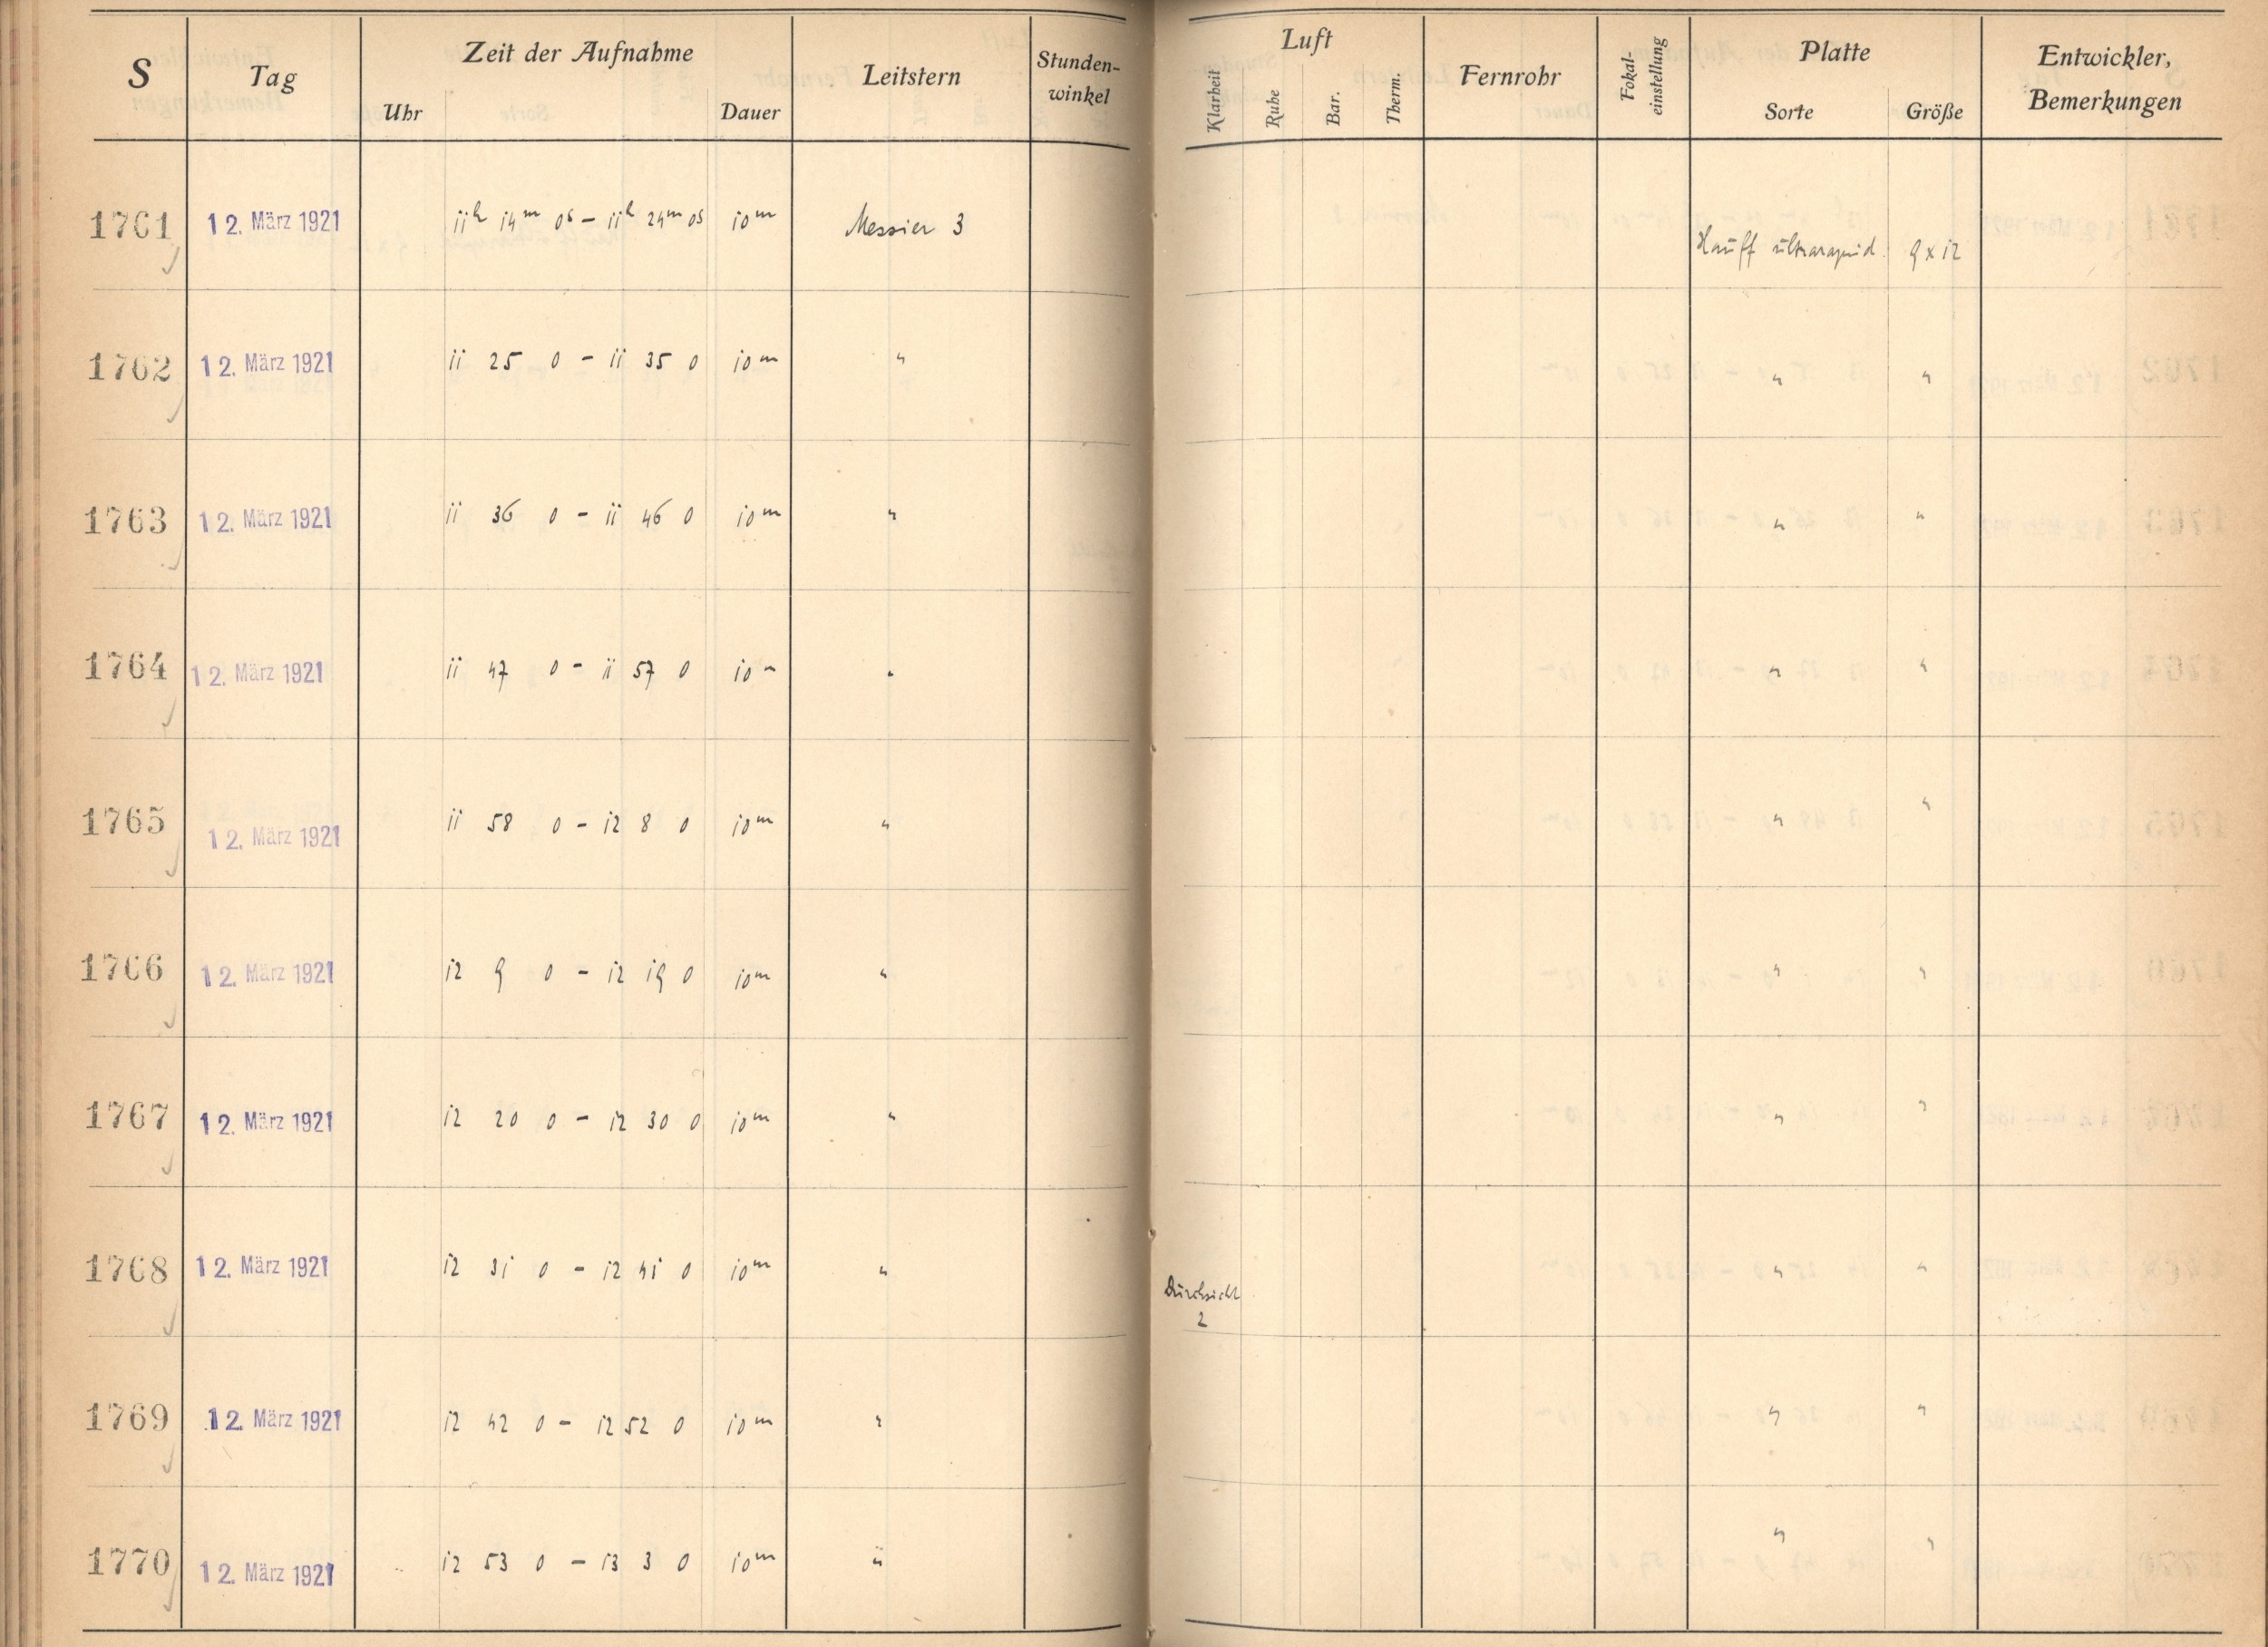 S Tag Zeit der Aufnahme Leitstern Stunden-winkel Luft Fernrohr Fokal-einstellung Platte Entwickler, Bemerkungen
Uhr Dauer Klarheit Ruhe Bar. Therm. Sorte Größe
1761 12. März 1921 11h 14m 0s – 11h 24m 0s 10m Messier 3 Hauff ultrarapid. 9 x 12
1762 12. März 1921 11 25 0 – 11 35 0 10m " " "
1763 12. März 1921 11 36 0 – 11 46 0 10m " " "
1764 12. März 1921 11 47 0 – 11 57 0 10m " " "
1765 12. März 1921 11 58 0 – 12 8 0 10m " " "
1766 12. März 1921 12 9 0 – 12 19 0 10m " " "
1767 12. März 1921 12 20 0 – 12 30 0 10m " " "
1768 12. März 1921 12 31 0 – 12 41 0 10m " Durchsicht 2 " "
1769 12. März 1921 12 42 0 – 12 52 0 10m " " "
1770 12. März 1921 12 53 0 – 13 3 0 10m " " "